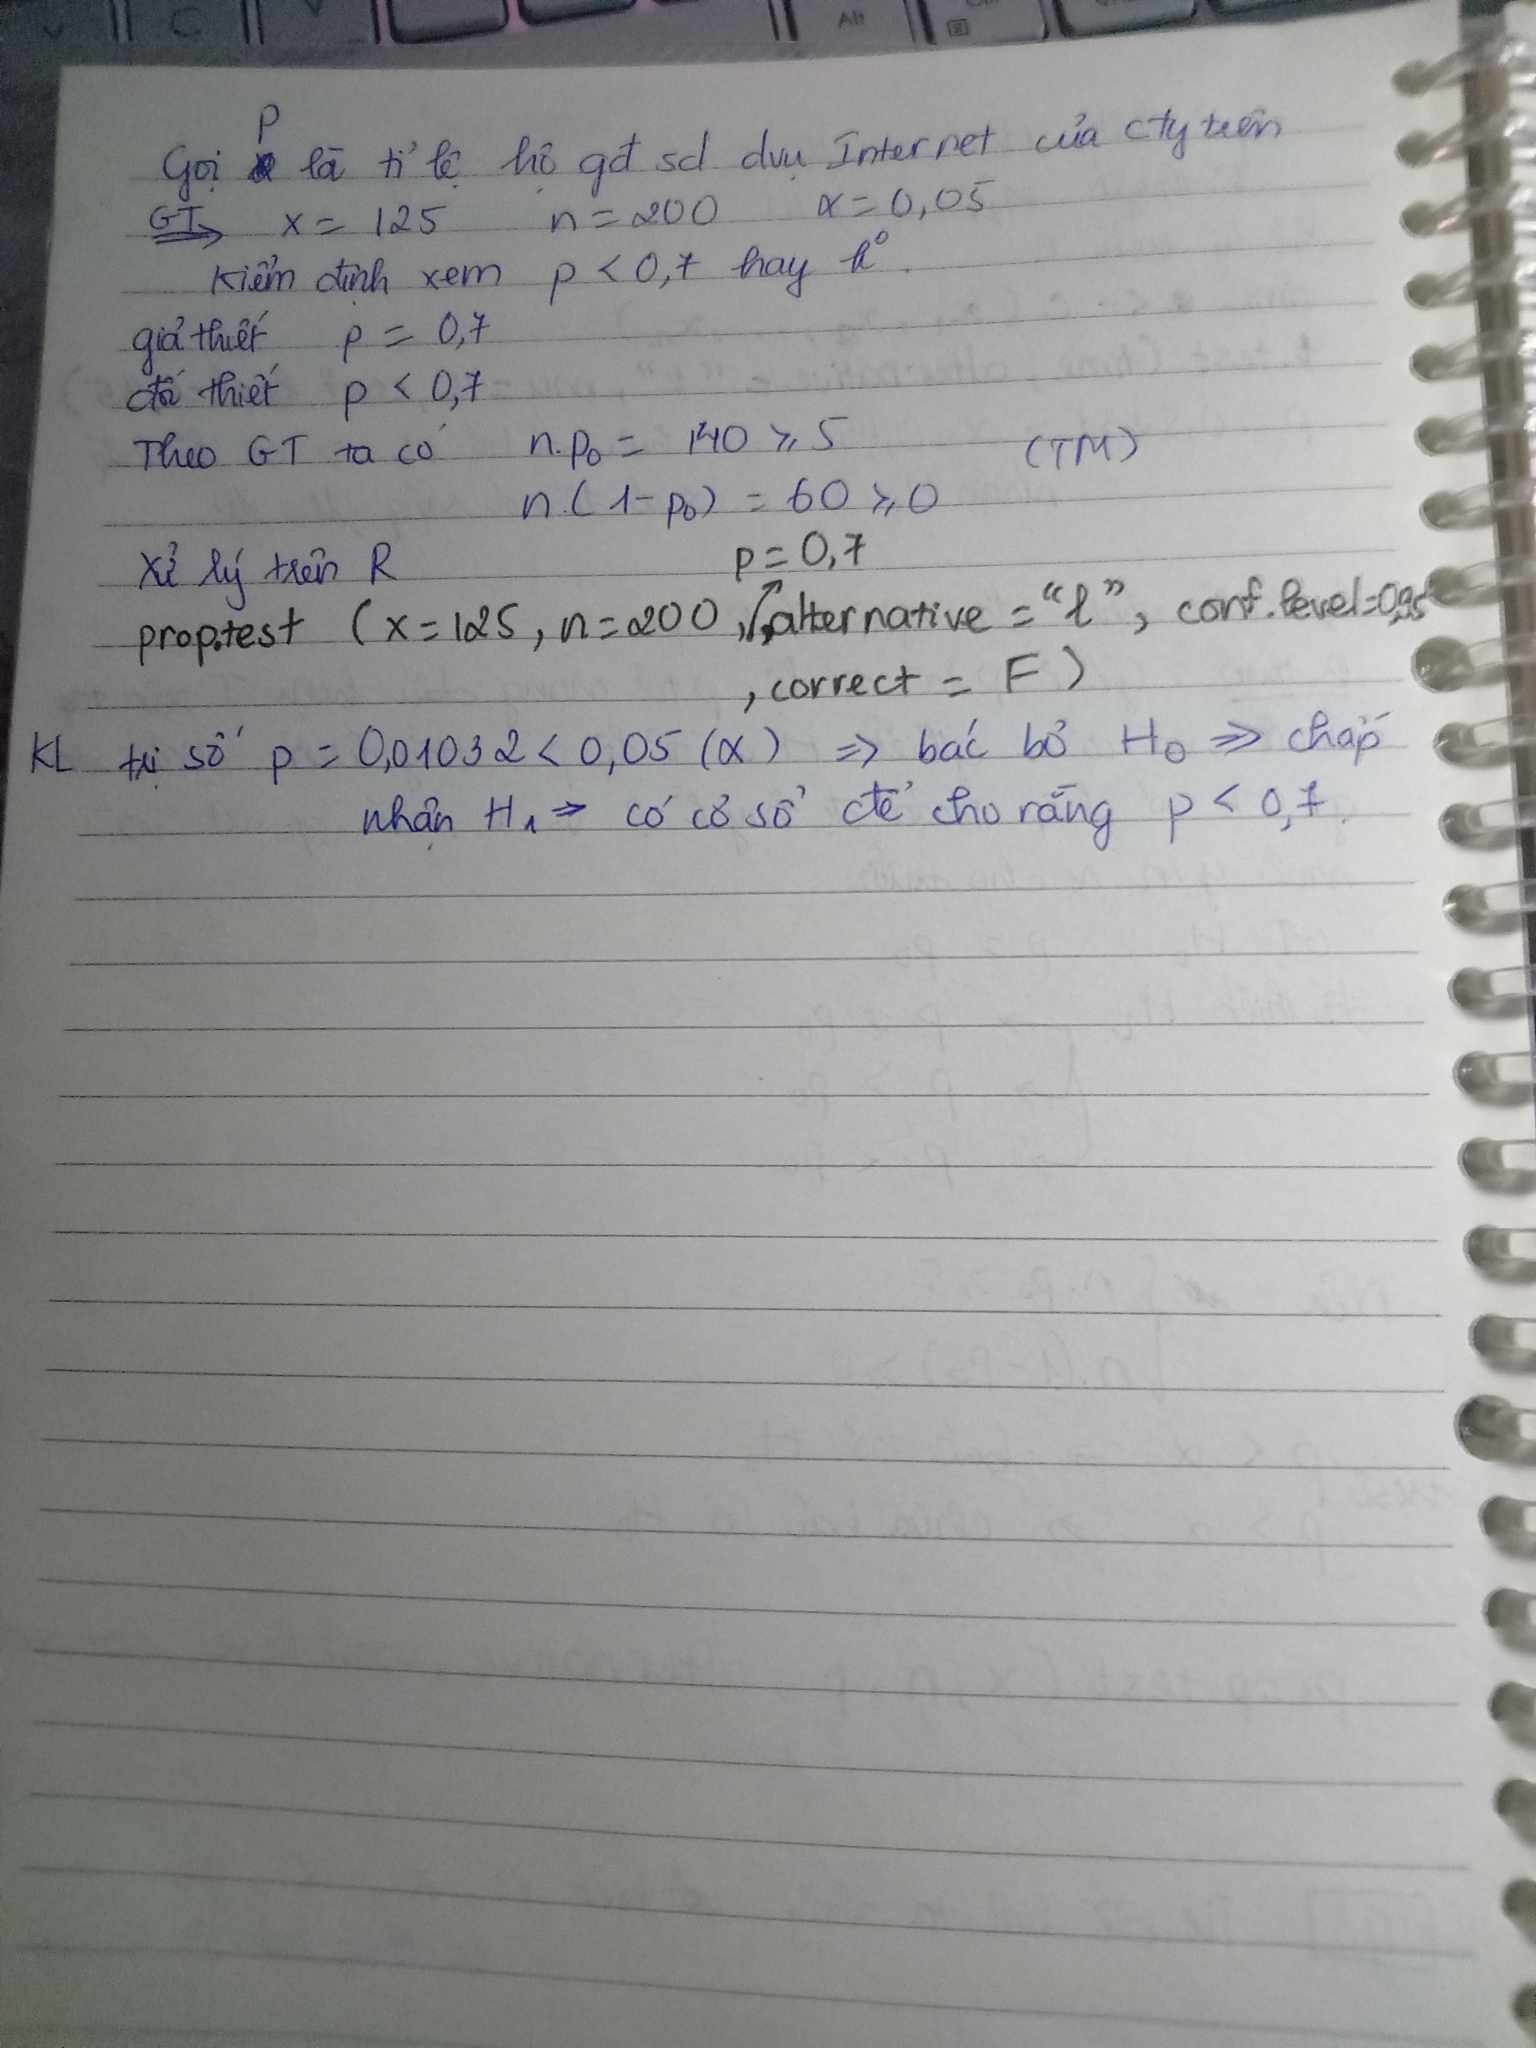 Gọi p là tỉ lệ hộ gđ sd dvụ Internet của cty trên
GT => x = 125 n = 200 α = 0,05
Kiểm định xem p < 0,7 hay k°.
giả thiết p = 0,7
đối thiết p < 0,7
Theo GT ta có n.p₀ = 140 ⩾ 5 (TM)
n.(1-p₀) = 60 ⩾ 0
Xử lý trên R p = 0,7
prop.test (x=125, n=200, alternative = "l", conf.level=0,95
, correct = F)
KL trị số p = 0,01032 < 0,05 (α) => bác bỏ H₀ => chấp
nhận H₁ => có cơ sở để cho rằng p < 0,7.